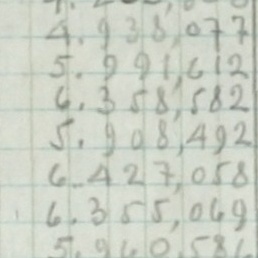 4.938,077
5.991,612
6.358,582
5.908,492
6.427,058
6.355,069